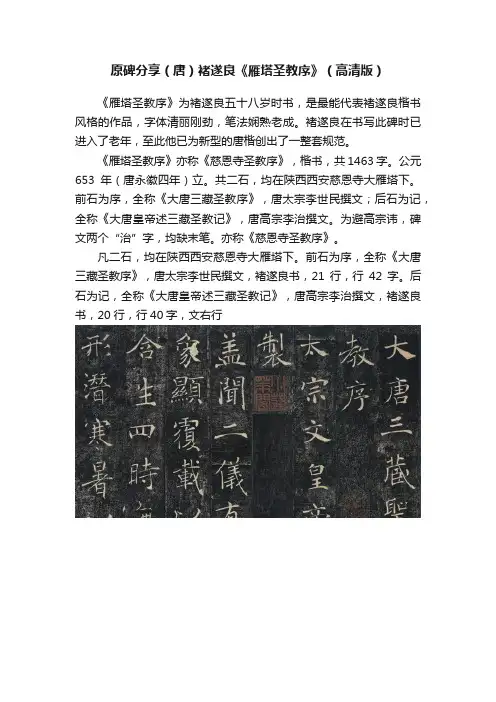 原碑分享(唐)褚遂良《雁塔圣教序》(高清版)
《雁塔圣教序》为褚遂良五十八岁时书,是最能代表褚遂良楷书
风格的作品,字体清丽刚劲,笔法娴熟老成。褚遂良在书写此碑时已
进入了老年,至此他已为新型的唐楷创出了一整套规范。
《雁塔圣教序》亦称《慈恩寺圣教序》,楷书,共1463字。公元
653 年(唐永徽四年)立。共二石,均在陕西西安慈恩寺大雁塔下。
前石为序,全称《大唐三藏圣教序》,唐太宗李世民撰文;后石为记,
全称《大唐皇帝述三藏圣教记》,唐高宗李治撰文。为避高宗讳,碑
文两个“治”字,均缺末笔。亦称《慈恩寺圣教序》。
凡二石,均在陕西西安慈恩寺大雁塔下。前石为序,全称《大唐
三藏圣教序》,唐太宗李世民撰文,褚遂良书,21 行,行 42 字。后
石为记,全称《大唐皇帝述三藏圣教记》,唐高宗李治撰文,褚遂良
书,20 行,行 40 字,文右行
大唐三藏聖
教序
太宗文皇帝
製
盖聞二儀有
象顯覆載以
含生四時無
形潛寒暑以